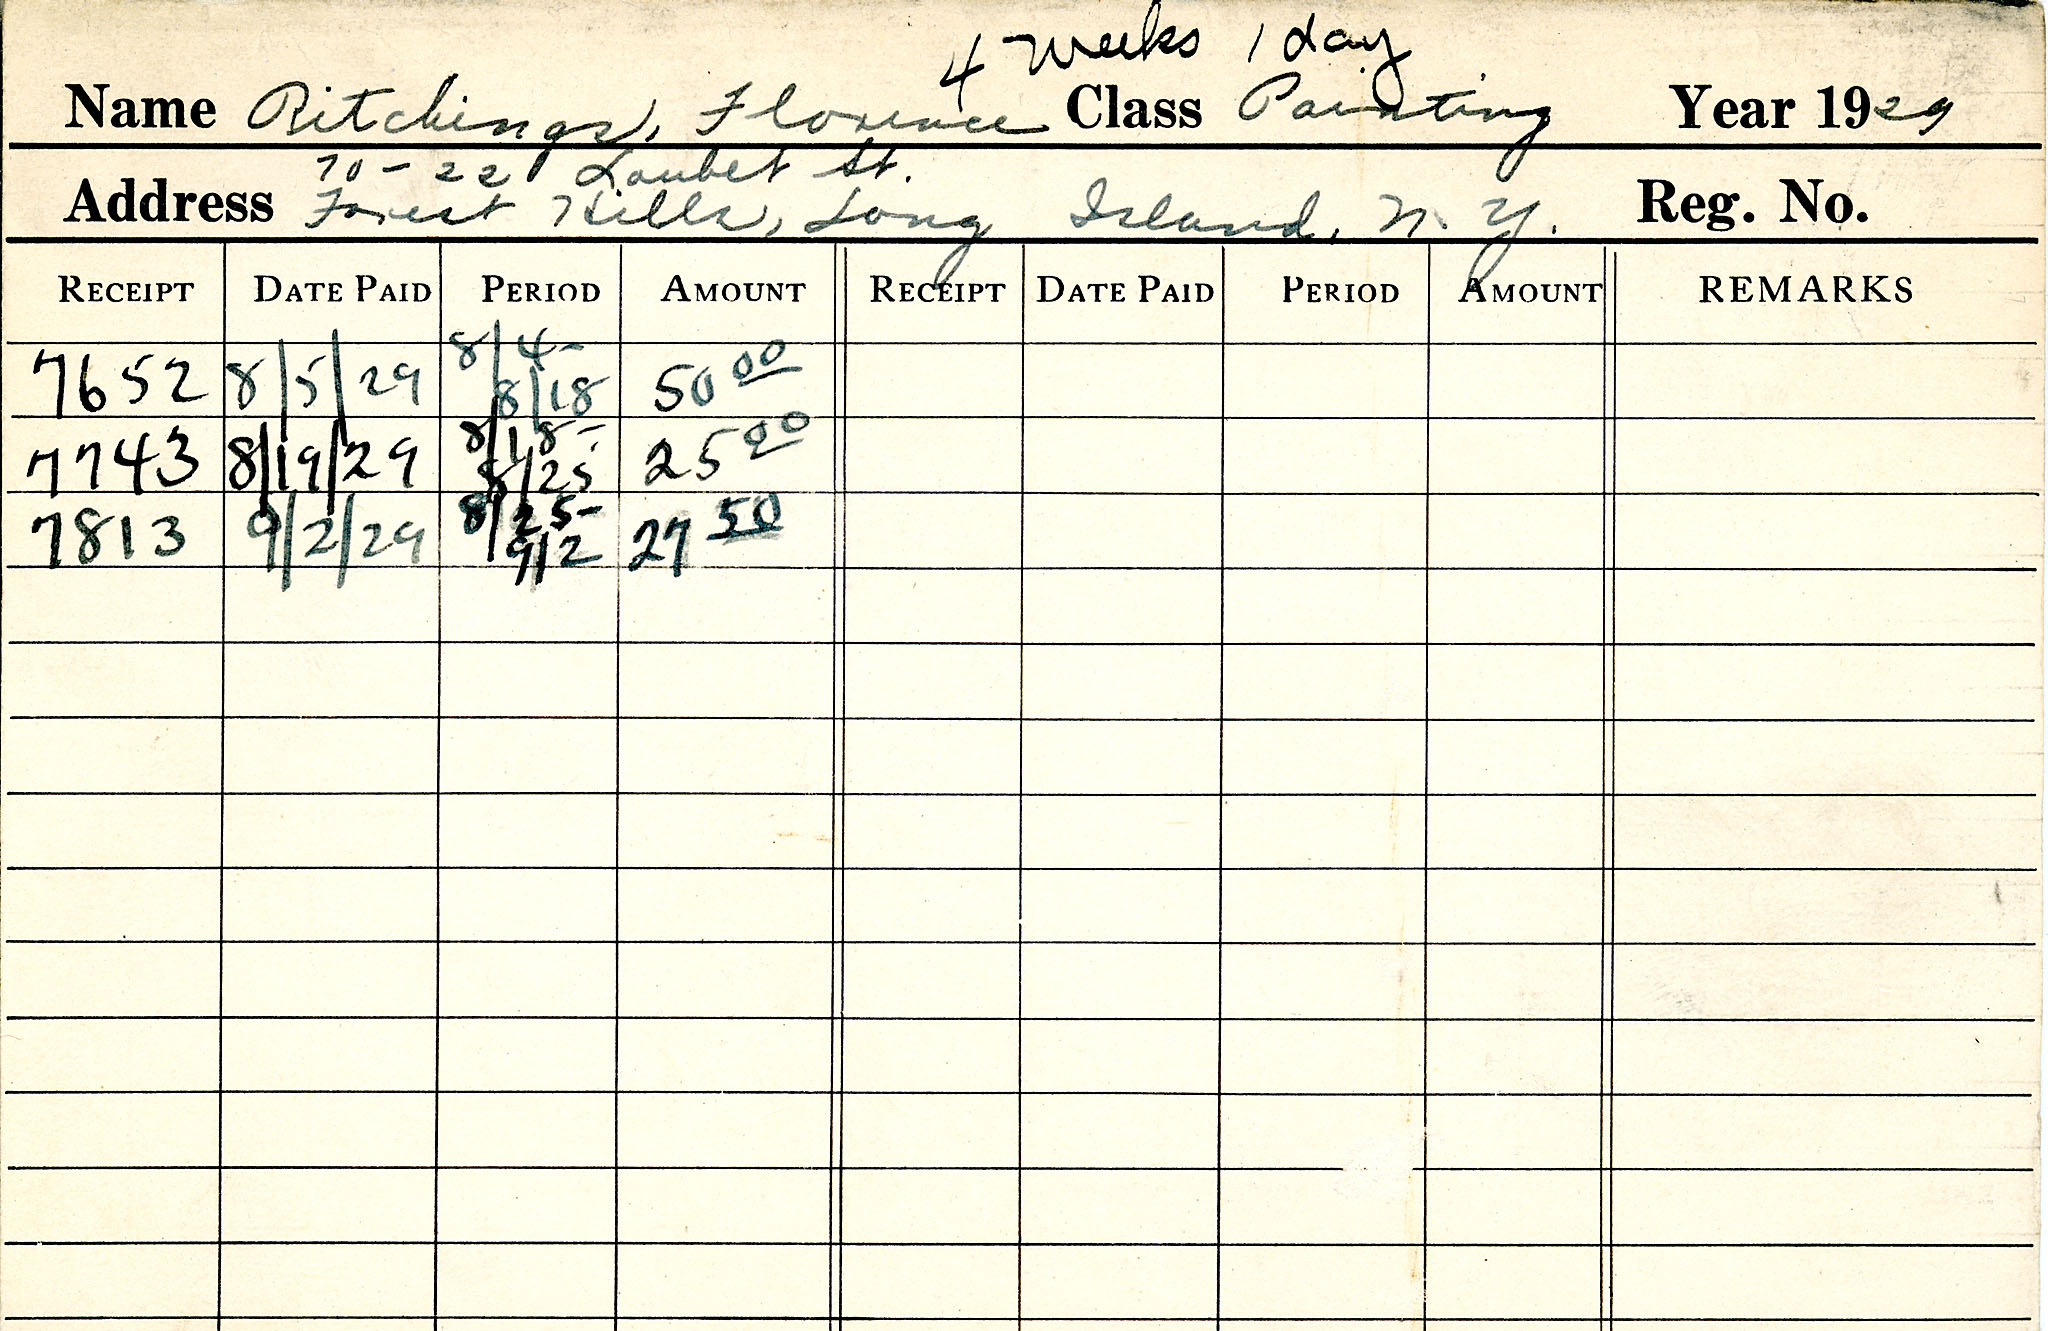 4 Weeks 1 day
Name Ritchings, Florence Class Painting Year 1929
70-22 Loubet St.
Address Forest Hills, Long Island, N. Y. Reg. No.
RECEIPT DATE PAID PERIOD AMOUNT RECEIPT DATE PAID PERIOD AMOUNT REMARKS
7652 8/5/29 8/4- 8/18 50 00
7743 8/19/29 8/18- 8/25 25 00
7813 9/2/29 8/25- 9/2 27 50